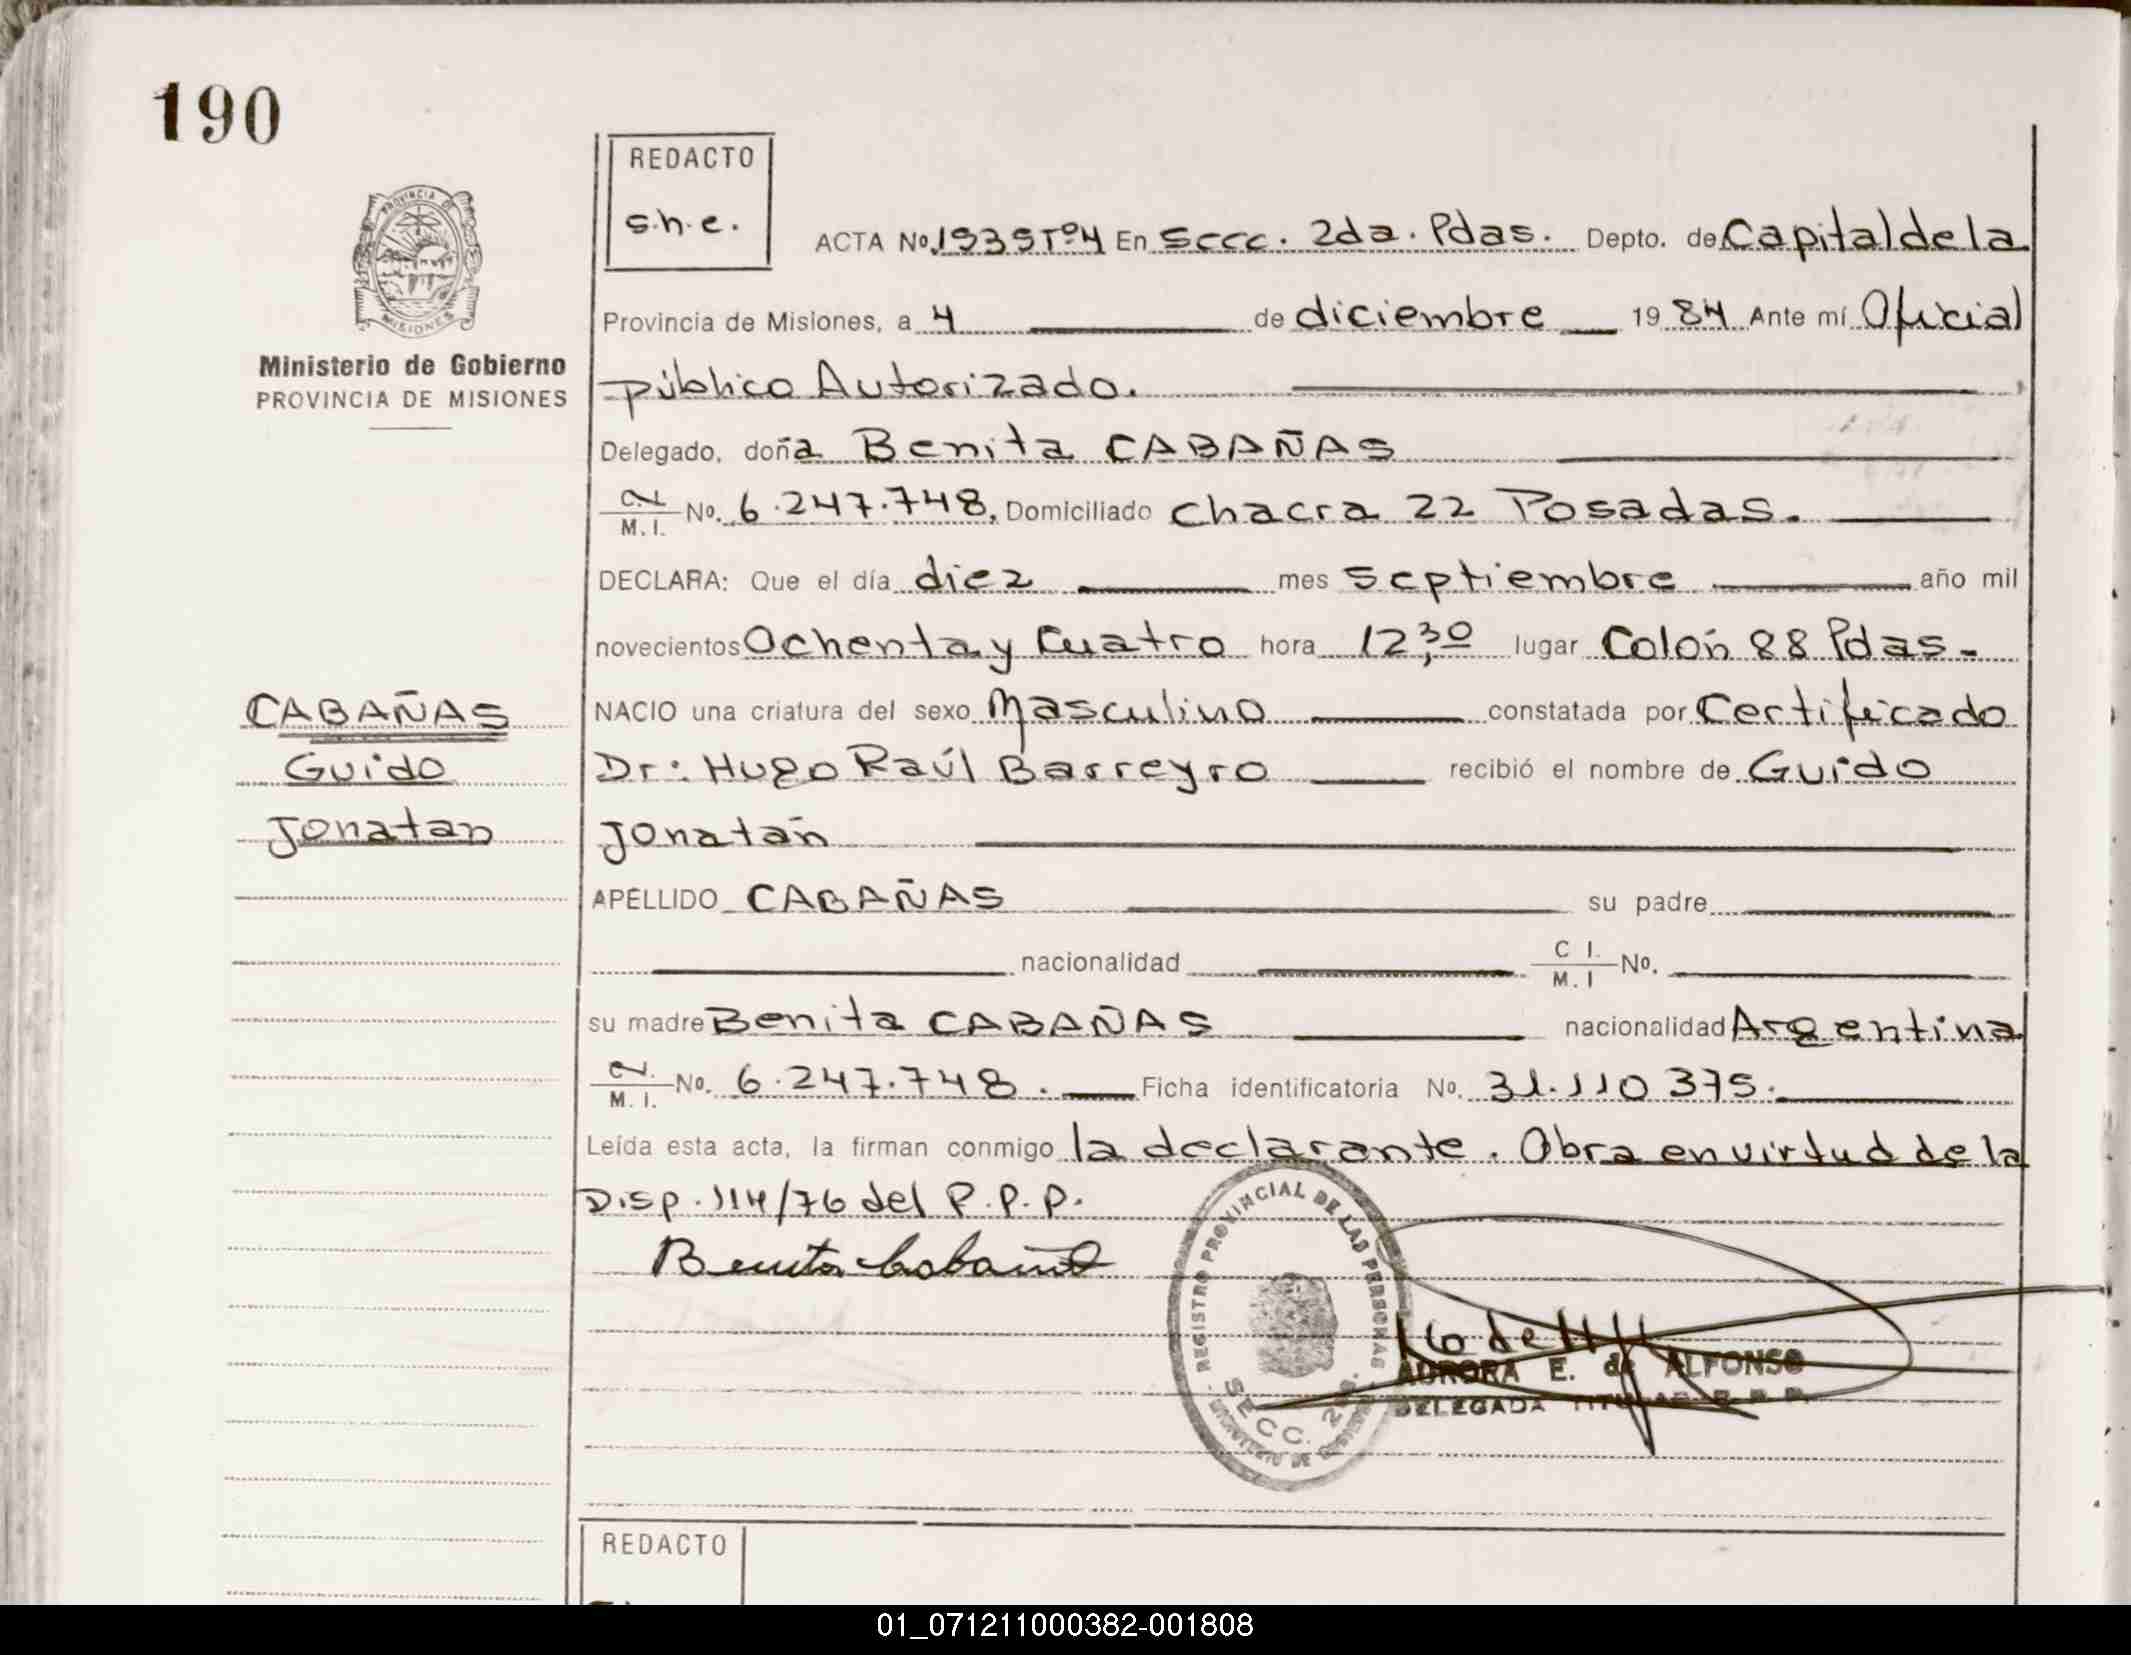 190
REDACTO
s.h.e.
ACTA No. 1939 Tº4 En Secc. 2da. Pdas. Depto. de Capital de la
PROVINCIA DE MISIONES
Provincia de Misiones, a 4 de diciembre 1984 Ante mí Oficial
Ministerio de Gobierno
PROVINCIA DE MISIONES
público Autorizado.
Delegado, doña Benita CABAÑAS
C.I. M.I. No. 6.247.748, Domiciliado Chacra 22 Posadas.
DECLARA: Que el día diez mes septiembre año mil
novecientos Ochenta y Cuatro hora 12,30 lugar Colón 88 Pdas.
CABAÑAS
NACIO una criatura del sexo Masculino constatada por Certificado
Guido
Dr: Hugo Raúl Barreyro recibió el nombre de Guido
Jonatan
Jonatán
APELLIDO CABAÑAS su padre
nacionalidad C I. M. I No.
su madre Benita CABAÑAS nacionalidad Argentina
C.I. M. I. No. 6.247.748. Ficha identificatoria No. 31.110375.
Leída esta acta, la firman conmigo la declarante. Obra en virtud de la
Disp. 114/76 del P.P.P.
Benita Cabañas
REGISTRO PROVINCIAL DE LAS PERSONAS
SECC. 2da.
AURORA E. de ALFONSO
DELEGADA TITULAR
REDACTO
01_071211000382-001808